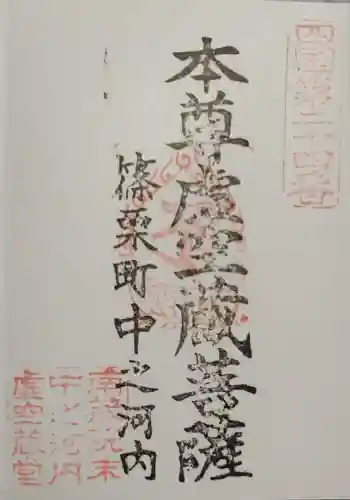 四国第二十四番
本尊虚空蔵菩薩
篠栗町中之河内
中之河内
虚空蔵堂